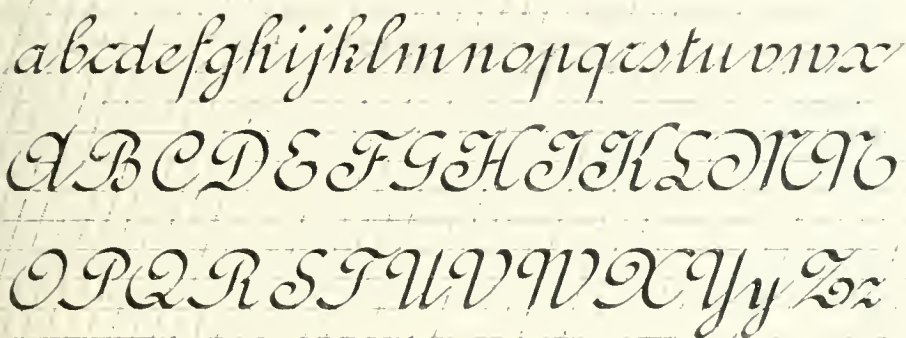 abcdefghijklmnopqrstuvwx
ABCDEFGHIKLMN
OPQRSTUVWXYyZz